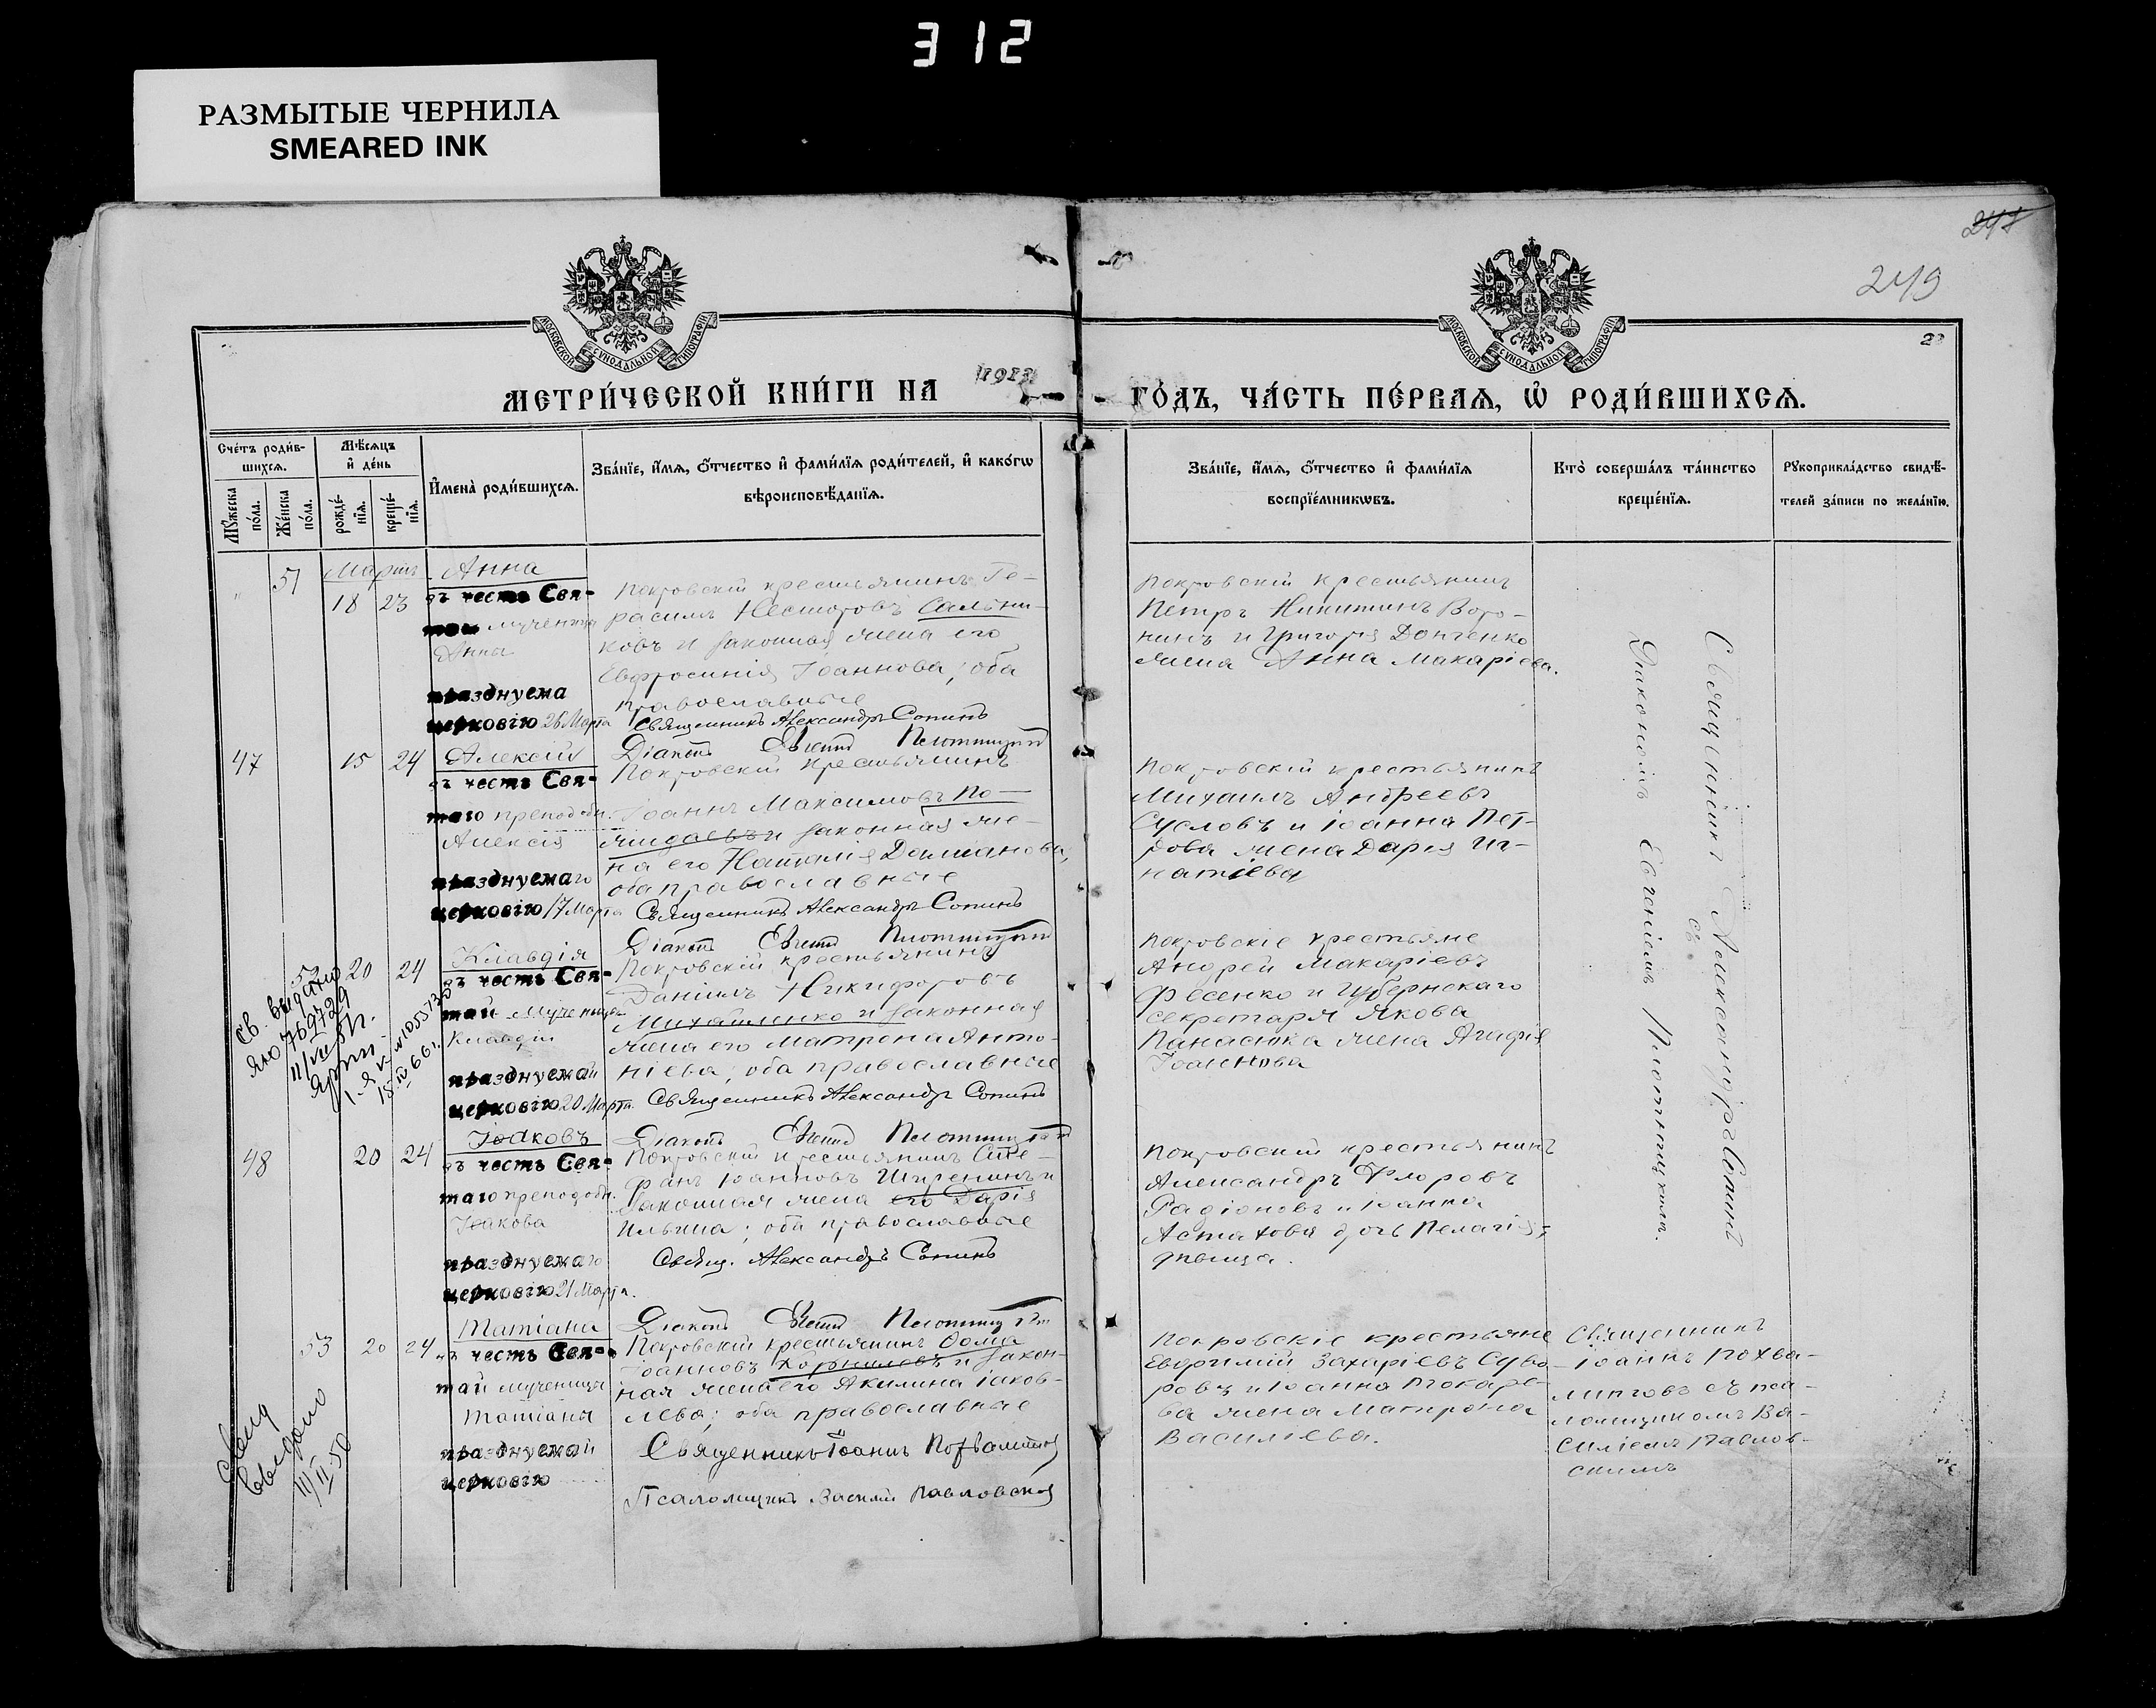 312
РАЗМЫТЫЕ ЧЕРНИЛА
SMEARED INK
247
249
МОСКОВСКОЙ СѴНОДАЛЬНОЙ ТИПОГРАФІИ
МОСКОВСКОЙ СѴНОДАЛЬНОЙ ТИПОГРАФІИ
МЕТРИ́ЧЕСКОЙ КНИ́ГИ НА 1913 ГО́ДЪ, ЧА́СТЬ ПЕ́РВАЯ, Ѡ РОДИ́ВШИХСЯ.
Сче́тъ роди́в-
шихся.
Мꙋ́жеска
по́ла.
Же́нска
по́ла.
Мѣ́сяцъ
и де́нь
рожде́-
нїя.
креще́-
нїя.
Имена̀ роди́вшихся.
Зва́нїе, и́мя, о́тчество и фами́лїя роди́телей, и како́гѡ
вѣроисповѣ́данїя.
Зва́нїе, и́мя, о́тчество и фами́лїя
воспрїе́мникѡвъ.
Кто̀ соверша́лъ та́инство
креще́нїя.
Рꙋкоприкла́дство свидѣ́-
телей за́писи по жела́нїю.
51
Мартъ
18 23
Анна
въ честь Свя-
той мученицы
Анна
празднуема
церковію 26 Марта
Покровскій крестьянинъ Ге-
расимъ Несторовъ Сальни-
ковъ и законная жена его
Евфросинія Іоаннова; оба
православные
Священникъ Александръ Сопинъ
Діаконъ Евгеній Плотницкій
Покровскій крестьянинъ
Петръ Никитинъ Воро-
нинъ и Григорія Донченко
жена Анна Макаріева.
47
15 24
Алексій
въ честь Свя-
таго преподобн.
Алексія
празднуемаго
церковію 17 Марта
Покровскій крестьянинъ
Іоаннъ Максимовъ По-
и законная же-
на его Наталія
оба православные
Священникъ Александръ Сопинъ
Діаконъ Евгеній Плотницкій
Покровскій крестьянинъ
Михаилъ Андреевъ
Сусловъ и Іоанна Пет-
рова жена Дарія Иг-
натіева
52
20 24
Клавдія
въ честь Свя-
той Мученицы
Клавдіи
празднуемай
церковію 20 Марта
Покровскій крестьянинъ
Даніилъ Никифоровъ
Михайленко и законная
жена его Матрона Анто-
ніева; оба православные
Священникъ Александръ Сопинъ
Діаконъ Евгеній Плотницкій
Покровскіе крестьяне
Андрей Макаріевъ
Фесенко и Губернскаго
секретаря Якова
Панасюка жена Агафія
Іоаннова
Св. выдано
48
20 24
Іаковъ
въ честь Свя-
таго преподобн.
Іакова
празднуемаго
церковію 21 Марта.
Покровскій крестьянинъ Сте-
фанъ Іоанновъ Ширенинъ и
законная жена его Дарія
Ильина; оба православные
Свящ. Александръ Сопинъ
Діаконъ Евгеній Плотницкій
Покровскій крестьянинъ
Александръ Флоровъ
Радіоновъ и Іоанна
Астахова дочь Пелагія,
дѣвица.
Священникъ Александръ Сопинъ
съ
Діакономъ Евгеніемъ Плотницкимъ.
53
20 24
Татіана
въ честь Свя-
той мученицы
Татіаны
празднуемай
церковію
Покровскій крестьянинъ Ѳома
Іоанновъ Корнилевъ и закон-
ная жена его Акилина Іаков-
лева; оба православные
Священникъ Іоаннъ Похвалитовъ
Псаломщикъ Василій Павловскій
Покровскіе крестьяне
Евфимій Захаріевъ Суво-
ровъ и Іоанна Токаре-
ва жена Матрона
Василіева.
Священникъ
Іоаннъ Похва-
литовъ съ пса-
ломщикомъ Ва-
силіемъ Павлов-
скимъ
Свид
выдано
11/II 50